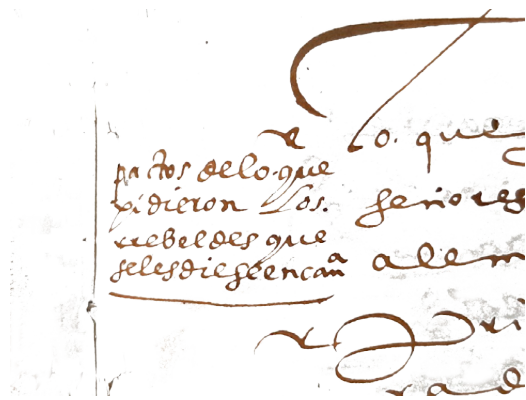 pactos de lo que
pidieron Los.
rrebeldes que
seles diese en canª
Lo. que
señores
alem